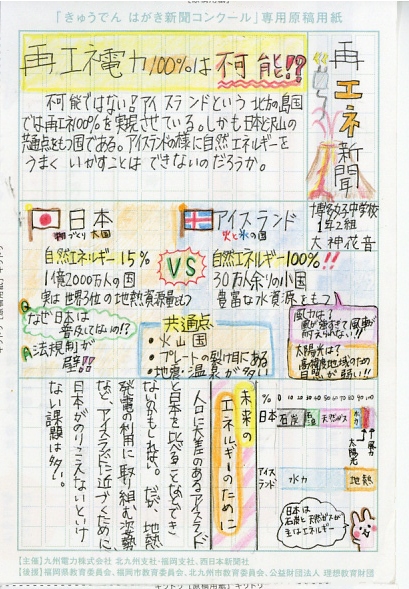 「きゅうでん はがき新聞コンクール」専用原稿用紙
再エネ電力100%は不可能!?
再エネ新聞
不可能ではない?アイスランドという北方の島国
では再エネ100%を実現させている。しかも日本と沢山の
共通点をもつ国である。アイスランドの様に自然エネルギーを
うまくいかすことはできないのだろうか。
博多女子中学校
1年2組
大神花音
日本
物づくり大国
自然エネルギー15%
1億2000万人の国
実は世界3位の地熱資源量もつ
VS
アイスランド
火と氷の国
自然エネルギー100%!!
30万人余りの小国
豊富な水資源をもつ
Q なぜ日本は
普及してないの!?
A 法規制が
壁!!
共通点
・火山国
・プレートの裂け目にある
・地震・温泉が多い
風力は!
風が強すぎて風車が
耐えられない!!
太陽光は?
高緯度地域のため
日照が弱い!!
未来の
エネルギーのために
人口に大差のあるアイスランド
と日本を比べることなんてでき
ないかもしれない。だが、地熱
発電の利用に取り組む姿勢
など、アイスランドに近づくために
日本がのりこえないといけ
ない課題は多い。
% 0 10 20 30 40 50 60 70 80 90 100
日本 石炭 石油 天然ガス 水力
風力
太陽光
アイスランド 水力 地熱
日本は
石炭と天然ガスが
主なエネルギー
【主催】九州電力株式会社 北九州支社・福岡支社、西日本新聞社
【後援】福岡県教育委員会、福岡市教育委員会、北九州市教育委員会、公益財団法人 理想教育財団